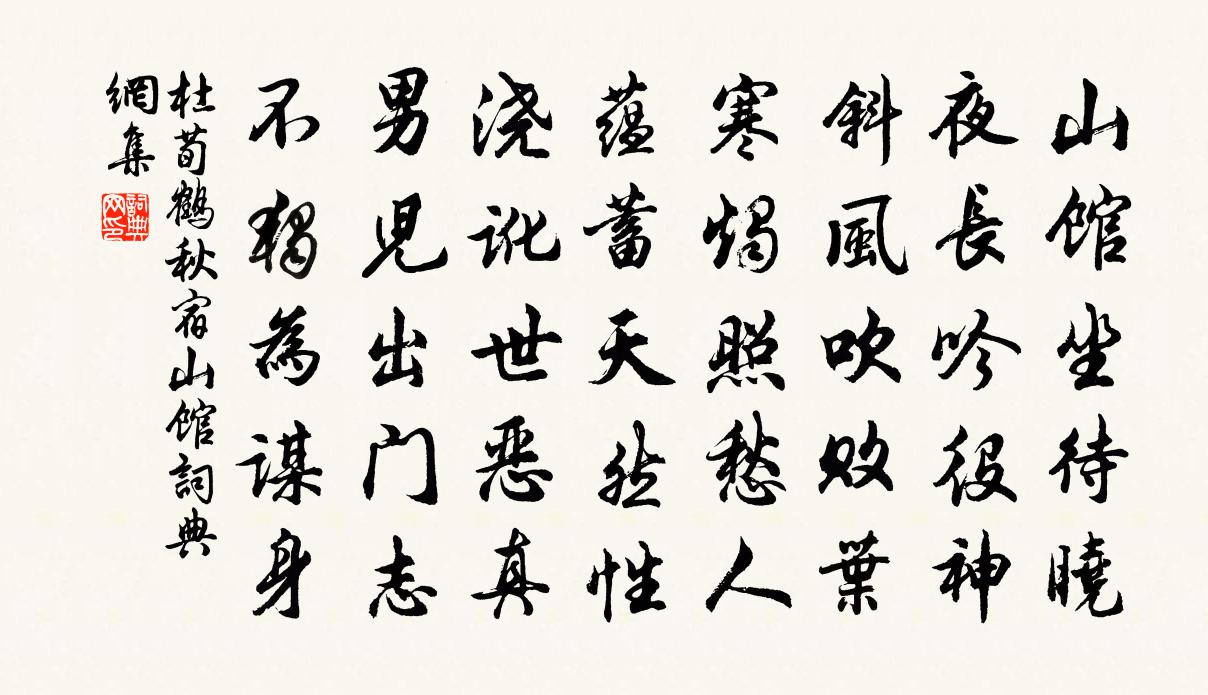 山馆坐待曉
夜長吟役神
斜風吹败葉
寒燭照愁人
蕴蓄天然性
浇讹世恶真
男児出门志
不独為谋身
杜荀鶴秋宿山馆詞典
網集
詞典网印